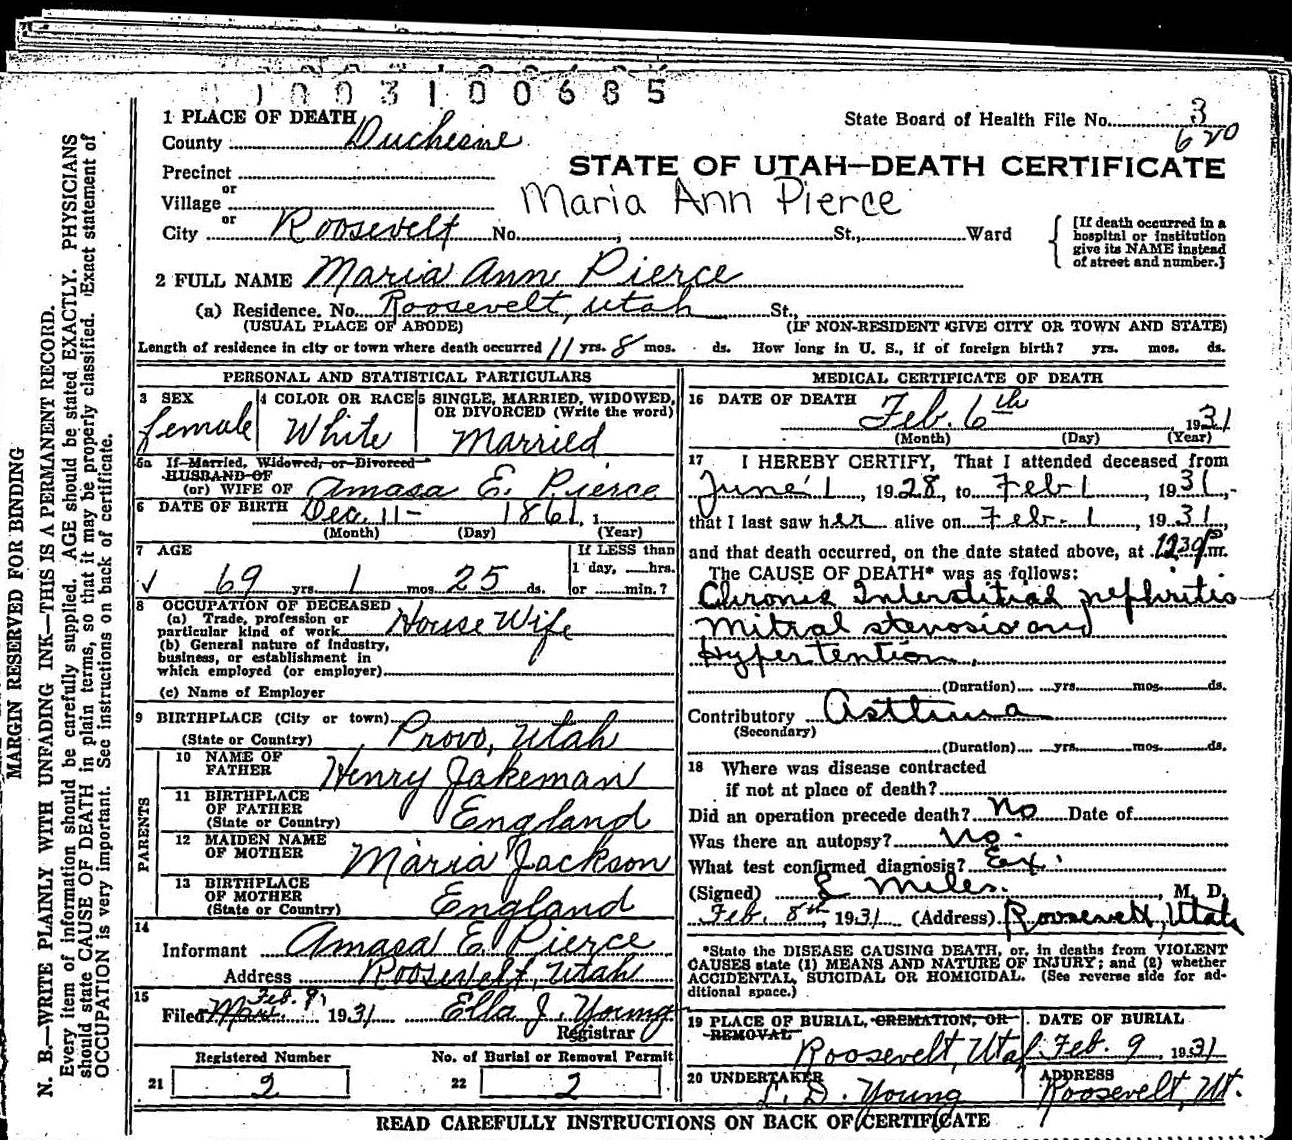 1 0 0 3 1 0 0 6 8 5
1 PLACE OF DEATH
County Duchesne
State Board of Health File No. 3
620
Precinct
or
Village
or
City Roosevelt No. , St., Ward
STATE OF UTAH—DEATH CERTIFICATE
Maria Ann Pierce
[If death occurred in a
hospital or institution
give its NAME instead
of street and number.]
2 FULL NAME Maria Ann Pierce
(a) Residence. No. Roosevelt, Utah St.,
(USUAL PLACE OF ABODE) (IF NON-RESIDENT GIVE CITY OR TOWN AND STATE)
Length of residence in city or town where death occurred 11 yrs. 8 mos. ds. How long in U. S., if of foreign birth? yrs. mos. ds.
PERSONAL AND STATISTICAL PARTICULARS
3 SEX
female
4 COLOR OR RACE
White
5 SINGLE, MARRIED, WIDOWED,
OR DIVORCED (Write the word)
Married
5a If Married, Widowed, or Divorced
HUSBAND OF
(or) WIFE OF Amasa E. Pierce
6 DATE OF BIRTH Dec. 11- 1861, 1
(Month) (Day) (Year)
7 AGE
69 yrs. 1 mos. 25 ds.
If LESS than
1 day, hrs.
or min.?
8 OCCUPATION OF DECEASED
(a) Trade, profession or
particular kind of work House Wife
(b) General nature of industry,
business, or establishment in
which employed (or employer)
(c) Name of Employer
9 BIRTHPLACE (City or town)
(State or Country) Provo, Utah
PARENTS
10 NAME OF
FATHER Henry Jakeman
11 BIRTHPLACE
OF FATHER
(State or Country) England
12 MAIDEN NAME
OF MOTHER Maria Jackson
13 BIRTHPLACE
OF MOTHER
(State or Country) England
14
Informant Amasa E. Pierce
Address Roosevelt, Utah
15
Feb. 9,
Filed Mar. 1931 Ella J. Young
Registrar
Registered Number
21 2
No. of Burial or Removal Permit
22 2
MEDICAL CERTIFICATE OF DEATH
16 DATE OF DEATH Feb. 6th, 1931
(Month) (Day) (Year)
17 I HEREBY CERTIFY, That I attended deceased from
June 1, 1928, to Feb 1, 1931,
that I last saw her alive on Feb. 1, 1931,
and that death occurred, on the date stated above, at 1230 P m.
The CAUSE OF DEATH* was as follows:
Chronic Interstitial nephritis
Mitral stenosis and
Hypertention.
(Duration) yrs. mos. ds.
Contributory Asthma
(Secondary)
(Duration) yrs. mos. ds.
18 Where was disease contracted
if not at place of death?
Did an operation precede death? No Date of
Was there an autopsy? No.
What test confirmed diagnosis? Ex.
(Signed) L Miles, M. D.
Feb. 8th, 1931 (Address) Roosevelt, Utah
*State the DISEASE CAUSING DEATH, or, in deaths from VIOLENT
CAUSES state (1) MEANS AND NATURE OF INJURY; and (2) whether
ACCIDENTAL, SUICIDAL OR HOMICIDAL. (See reverse side for ad-
ditional space.)
19 PLACE OF BURIAL, CREMATION, OR
REMOVAL
Roosevelt, Utah
DATE OF BURIAL
Feb. 9, 1931
20 UNDERTAKER
D. Young
ADDRESS
Roosevelt, Ut.
READ CAREFULLY INSTRUCTIONS ON BACK OF CERTIFICATE
MARGIN RESERVED FOR BINDING
N. B.—WRITE PLAINLY WITH UNFADING INK—THIS IS A PERMANENT RECORD.
Every item of information should be carefully supplied. AGE should be stated EXACTLY. PHYSICIANS
should state CAUSE OF DEATH in plain terms, so that it may be properly classified. Exact statement of
OCCUPATION is very important. See instructions on back of certificate.